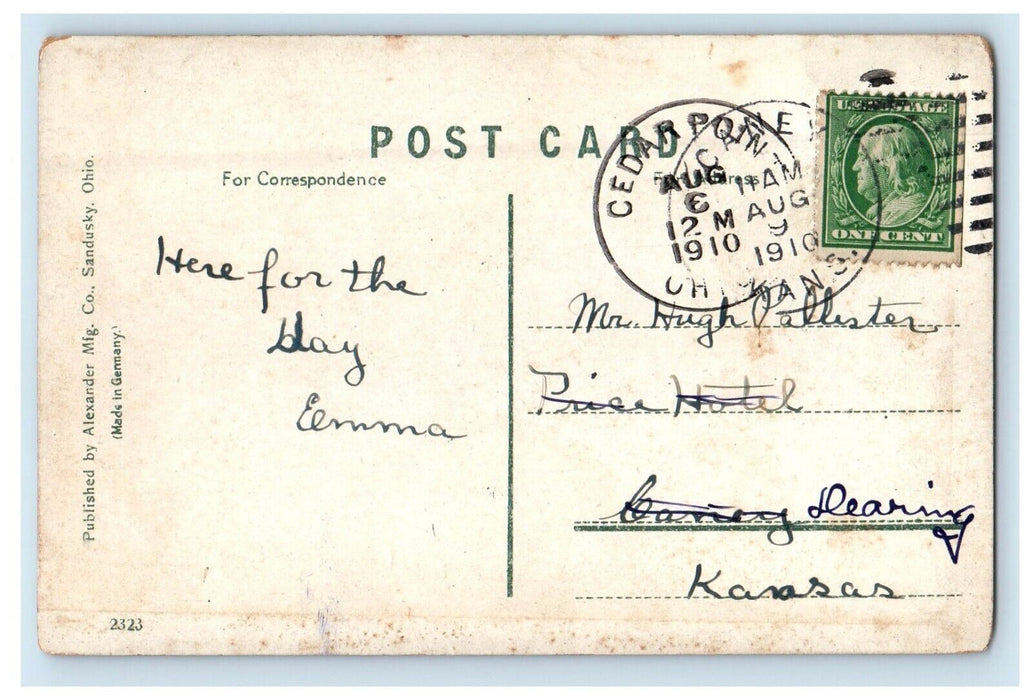 POST CARD
For Correspondence
Here for the
day
Emma
Published by Alexander Mfg. Co., Sandusky, Ohio.
(Made in Germany.)
2323
CEDAR POINT
AUG
6
12 M
1910
OHIO
CANEY
11 AM
AUG
9
1910
KANS.
U.S. POSTAGE
ONE CENT
Mr. Hugh Pallister
Price Hotel
Caney Dearing
Kansas